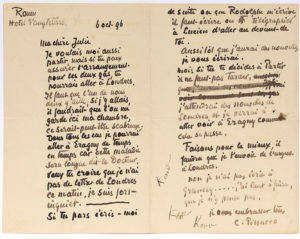 Rouen
Hotel d'Angleterre
6 oct. 96
Ma chère Julie
Je voulais moi aussi
partir, mais si tu peux
pour ces deux gas, tu
pourrais aller à Londres.
Il faut que l'un de nous
deux y aille, si j'y allais,
il faudrait que l'on me
garde ici ma chambre,
ce serait peut-être
Dans tous les cas je pourrai
aller à Eragny de temps
en temps car cette maladie
sera longue dit le Docteur.
Vous
pas de lettre de Londres
ce matin, je suis fort
inquiet
Si tu pars écris-moi
de suite ou que Rodolphe m'écrive
il peut écrire ou télégraphier
à Lucien d'aller au devant de
toi.
Aussitôt que j'aurai des nouvelles
je vous écrirai.
mais si tu te décides à Partir
il ne faut pas tarder,
j'attendrai des nouvelles de
Londres et je verrai à
aller voir à Eragny comment
cela se passe.
Faisons pour le mieux, il
faudra que je l'envoie de l'argent
à Londres.
non je n'ai pas écrit à
que je n'y pense pas.
je vous embrasse tous
C. Pissarro